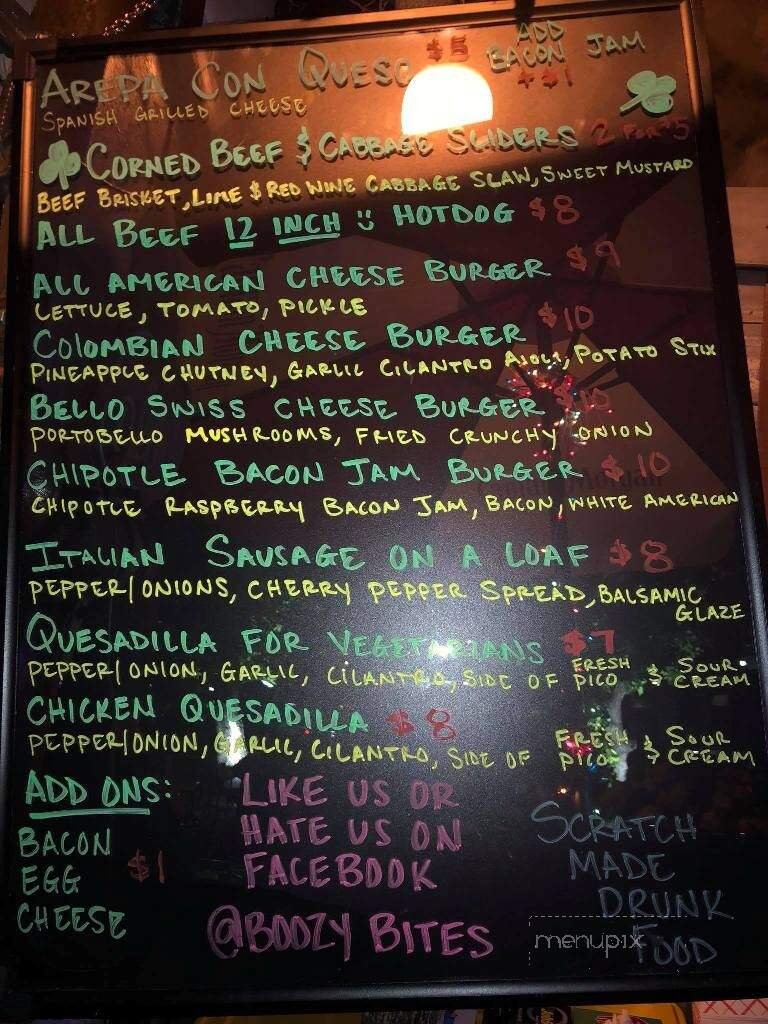 AREPA CON QUESO $5 ADD BACON JAM +$1
SPANISH GRILLED CHEESE
CORNED BEEF & CABBAGE SLIDERS 2 FOR $5
BEEF BRISKET, LIME & RED WINE CABBAGE SLAW, SWEET MUSTARD
ALL BEEF 12 INCH HOTDOG $8
ALL AMERICAN CHEESE BURGER $9
LETTUCE, TOMATO, PICKLE
COLOMBIAN CHEESE BURGER $10
PINEAPPLE CHUTNEY, GARLIC CILANTRO AIOLI, POTATO STIX
BELLO SWISS CHEESE BURGER $10
PORTOBELLO MUSHROOMS, FRIED CRUNCHY ONION
CHIPOTLE BACON JAM BURGER $10
CHIPOTLE RASPBERRY BACON JAM, BACON, WHITE AMERICAN
ITALIAN SAUSAGE ON A LOAF $8
PEPPER/ONIONS, CHERRY PEPPER SPREAD, BALSAMIC
GLAZE
QUESADILLA FOR VEGETARIANS $7
PEPPER/ONION, GARLIC, CILANTRO, SIDE OF FRESH PICO & SOUR CREAM
CHICKEN QUESADILLA $8
PEPPER/ONION, GARLIC, CILANTRO, SIDE OF FRESH PICO & SOUR CREAM
ADD ONS:
BACON
EGG $1
CHEESE
LIKE US OR
HATE US ON
FACEBOOK
@BOOZY BITES
SCRATCH
MADE
DRUNK
FOOD
menupix